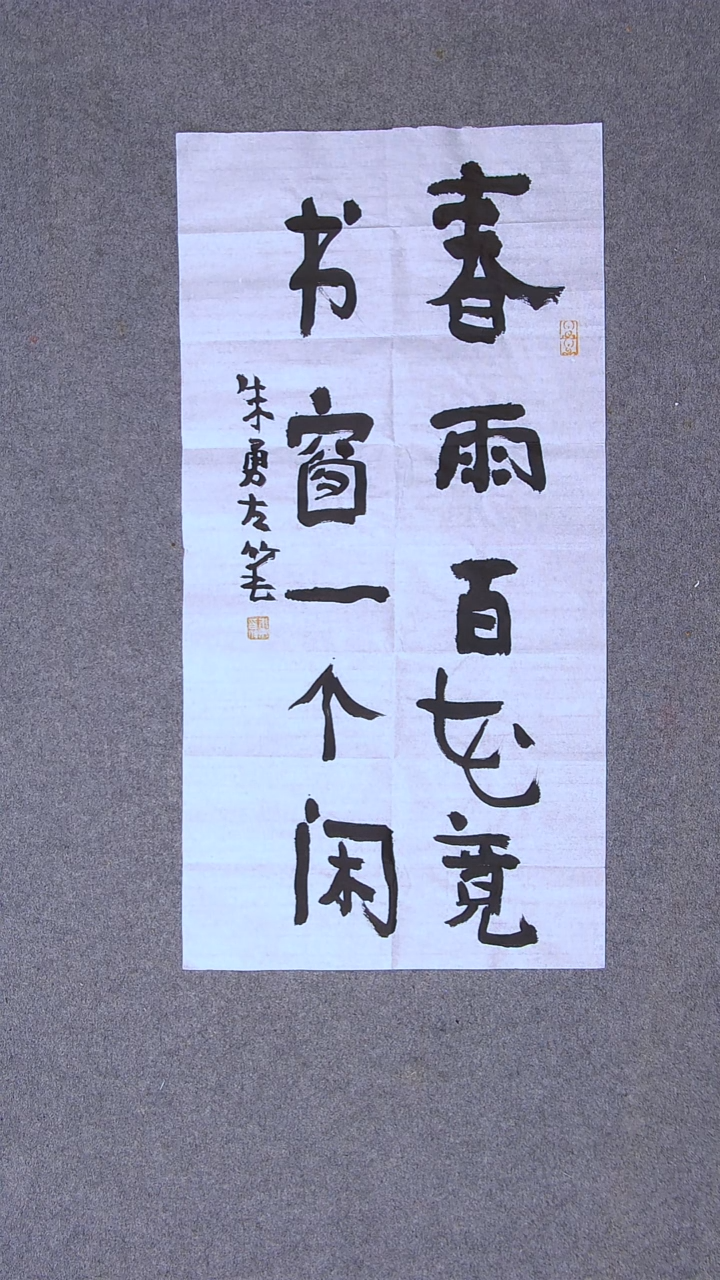 春雨百花竟
书窗一个闲
朱勇左笔